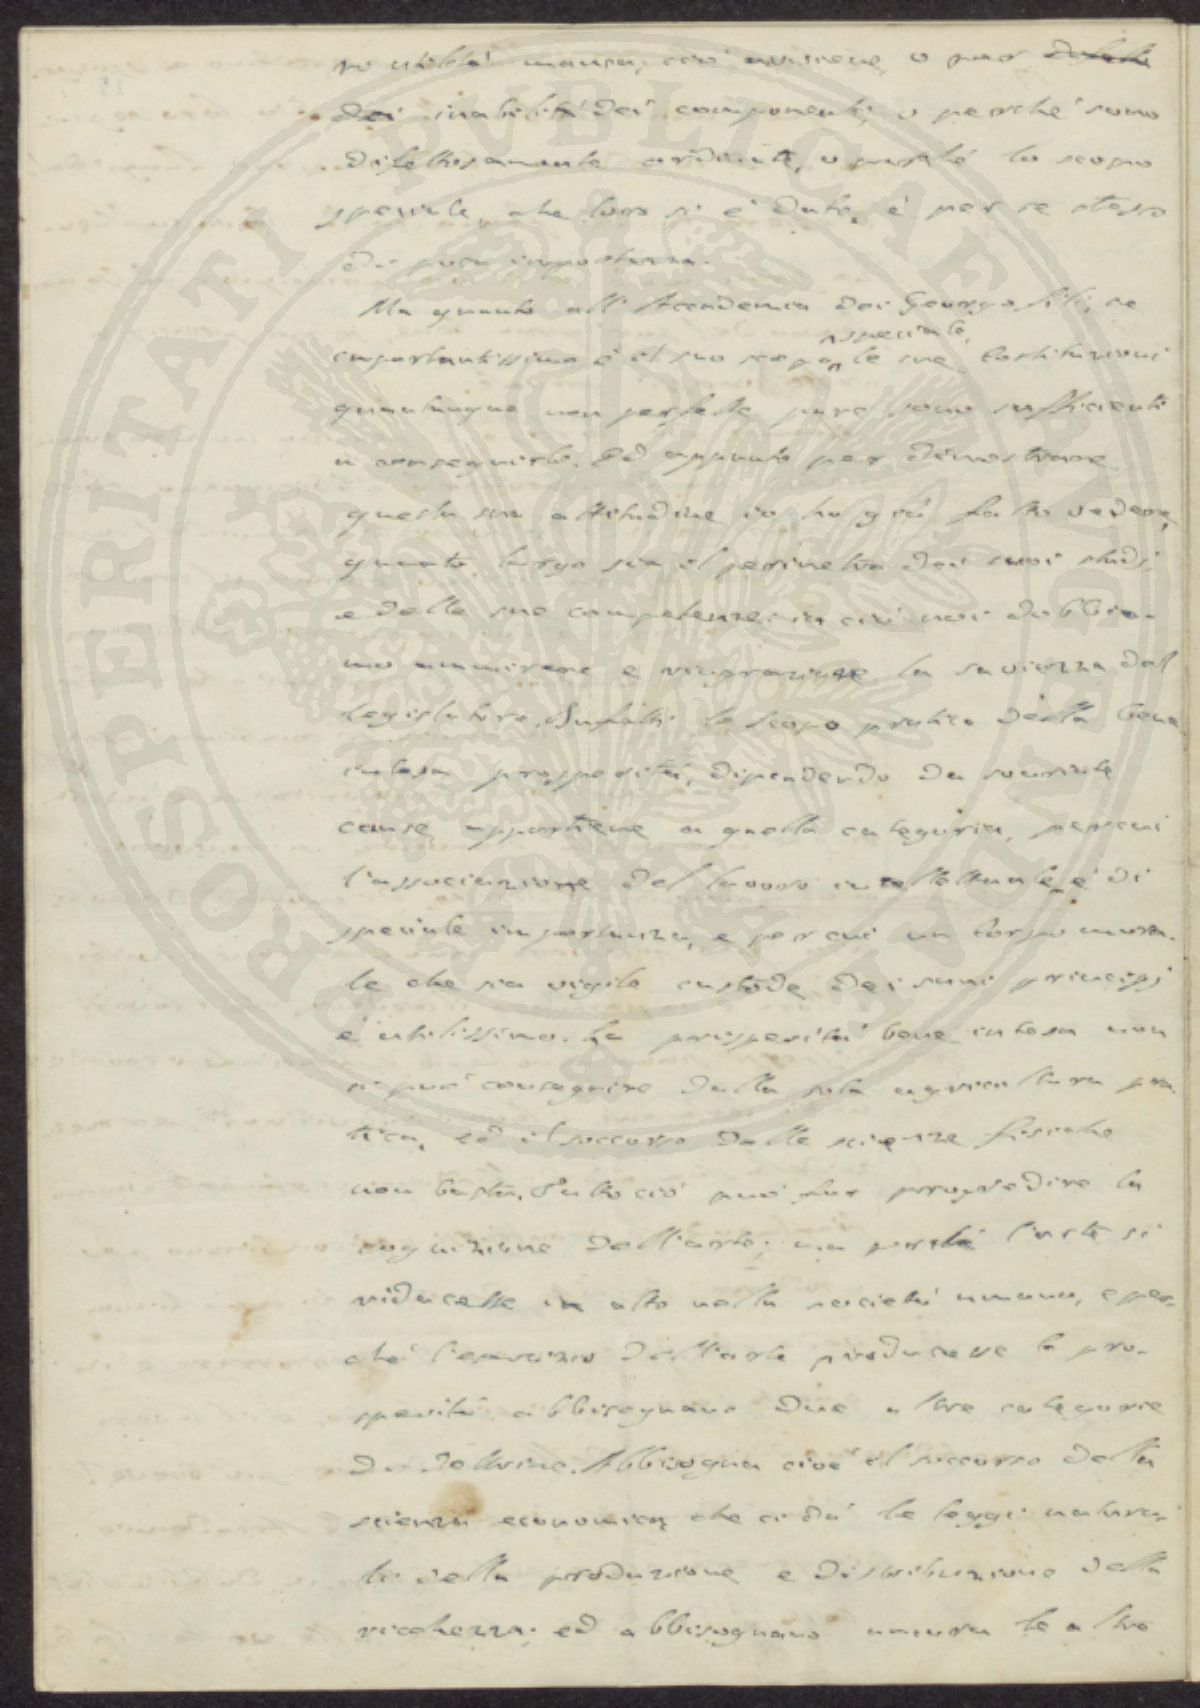 ro utilità manca, ciò avviene o per
dei inabilità dei componenti, o perché sono
difettosamente ordinati, o perché lo scopo
speciale, che loro si è dato, è per se stesso
di poca importanza.
Ma quanto all'Accademia dei Georgofili, se
speciale,
importantissimo è il suo scopo le sue Costituzioni
quantunque non perfette pure sono sufficienti
a conseguirlo. Ed appunto per dimostrare
questa sua attitudine io ho già fatto vedere,
quanto largo sia il perimetro dei suoi studj
e delle sue competenze: in ciò noi dobbia-
mo ammirare e ringraziare la saviezza del
legislatore. Infatti lo scopo pratico della bene
intesa prosperità, dipendendo da svariate
cause, appartiene a quella categoria, per cui
l'associazione del lavoro intellettuale è di
speciale importanza, e per cui un Corpo mora-
le che sia vigile custode dei sani principj
è utilissimo. La prosperità bene intesa non
si può conseguire dalla sola agricoltura pra-
tica, ed il soccorso dalle scienze fisiche
non basta. Tutto ciò può far progredire la
cognizione dell'arte; ma perché l'arte si
riducesse in atto nella società umana, e per-
ché l'esercizio dell'arte producesse la pro-
sperità abbisognano due altre categorie
di dottrine. Abbisogna cioè il soccorso della
scienza economica, che ci dà le leggi natura-
li della produzione e distribuzione della
ricchezza; ed abbisognano ancora le altre